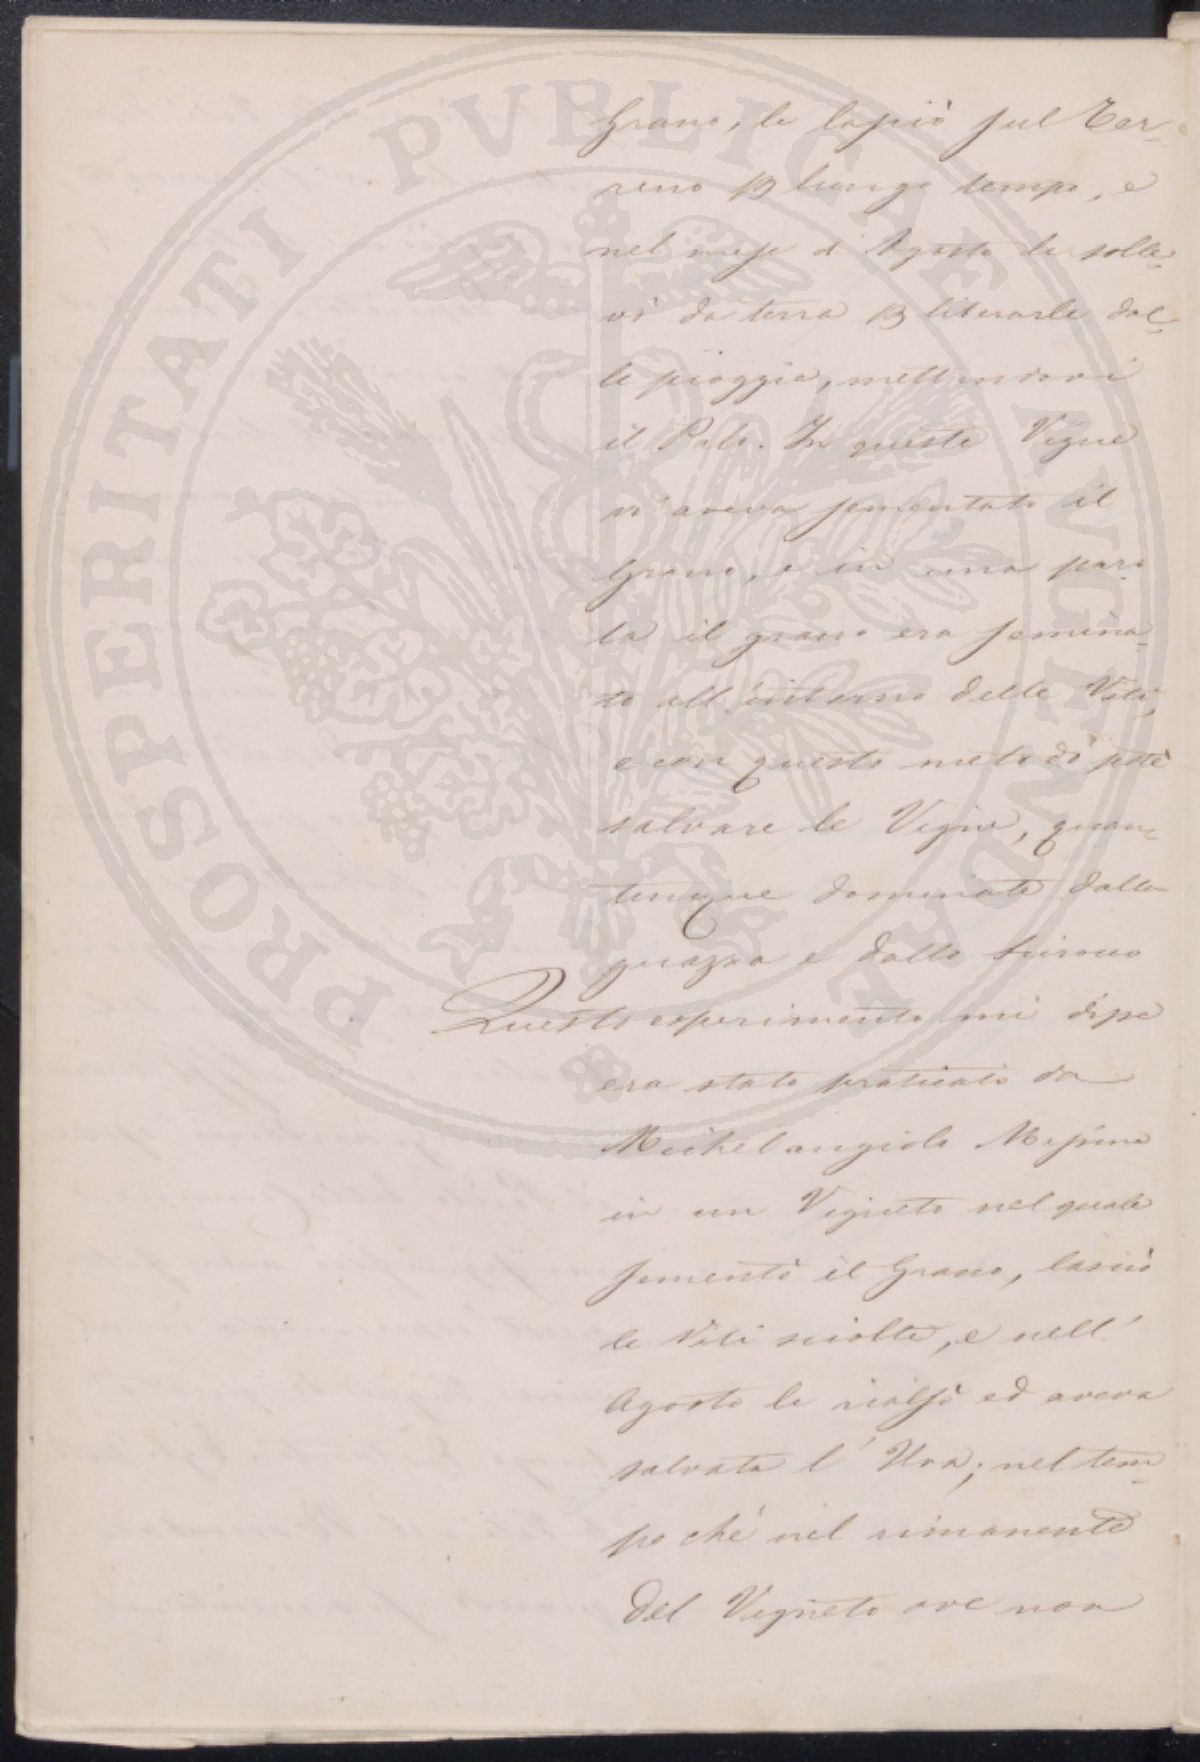 Grano, le lassiò sul Ter-
reno p lungo tempo, e
nel mese d'Agosto le solle-
vò da terra p liberarle dal-
le pioggie, mettendovi
il Palo. In queste Vigne
vi aveva sementato il
Grano, e in una paro-
la il grano era semina-
to all'interno delle Viti,
e con questo metodo potè
salvare le Vigne, quan-
tunque dominate dalla
guazza e dallo Scirocco
Questo esperimento mi disse
era stato praticato da
Michelangiolo Messina
in un Vigneto nel quale
sementò il Grano, lasciò
le Viti sciolte, e nell'
Agosto le rialsò ed aveva
salvata l'Uva; nel tem-
po chè nel rimanente
del Vigneto ove non
PROSPERITATI PVBLICAE AVGENDAE